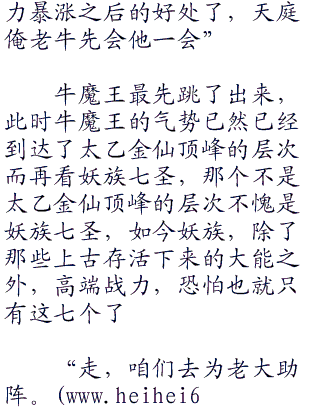 力暴涨之后的好处了，天庭
俺老牛先会他一会”
牛魔王最先跳了出来，
此时牛魔王的气势已然已经
到达了太乙金仙顶峰的层次
而再看妖族七圣，那个不是
太乙金仙顶峰的层次不愧是
妖族七圣，如今妖族，除了
那些上古存活下来的大能之
外，高端战力，恐怕也就只
有这七个了
“走，咱们去为老大助
阵。(www.heihei6